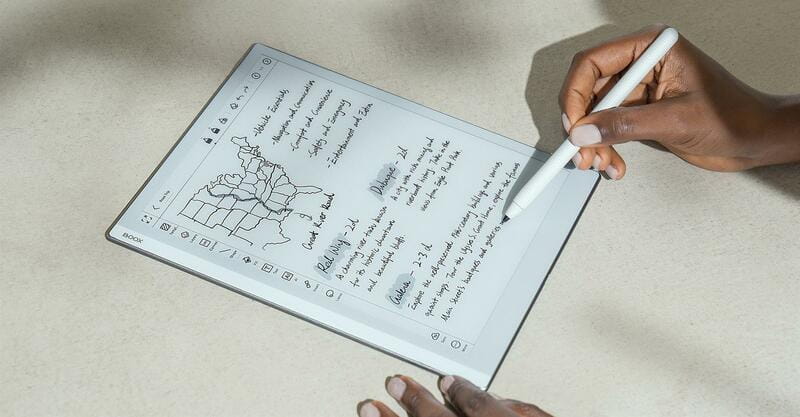 Road Trip
BOOX
-Vehicle Essentials
-Navigation and Communication
-Comfort and Convenience
-Safety and Emergency
-Entertainment and Extra
Great River Road
Red Wing - 2d
A charming river town known
for its historic downtown
and beautiful bluffs.
Dubuque - 2d
A city with rich mining and
riverboat history. Take in the
views from Eagle Point Park.
Galena - 2-3 d
Explore the well-preserved 19th-century buildings and various
quaint shops. Tour the Ulysses S. Grant Home, explore the famous
Main Street's boutiques and galleries